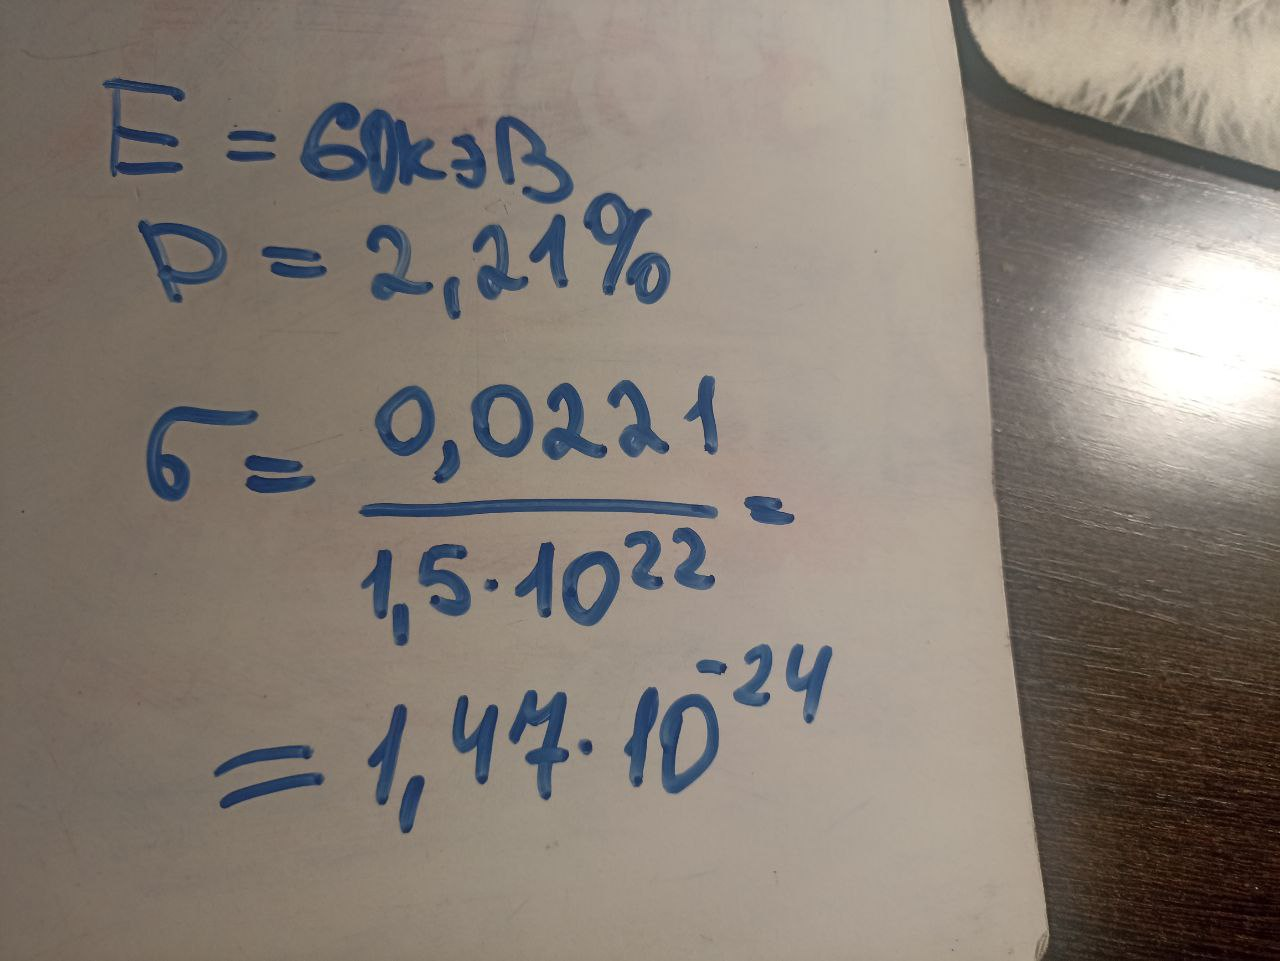 E = 60кэВ
P = 2,21%
σ = 0,0221 / 1,5·10²² =
= 1,47·10⁻²⁴